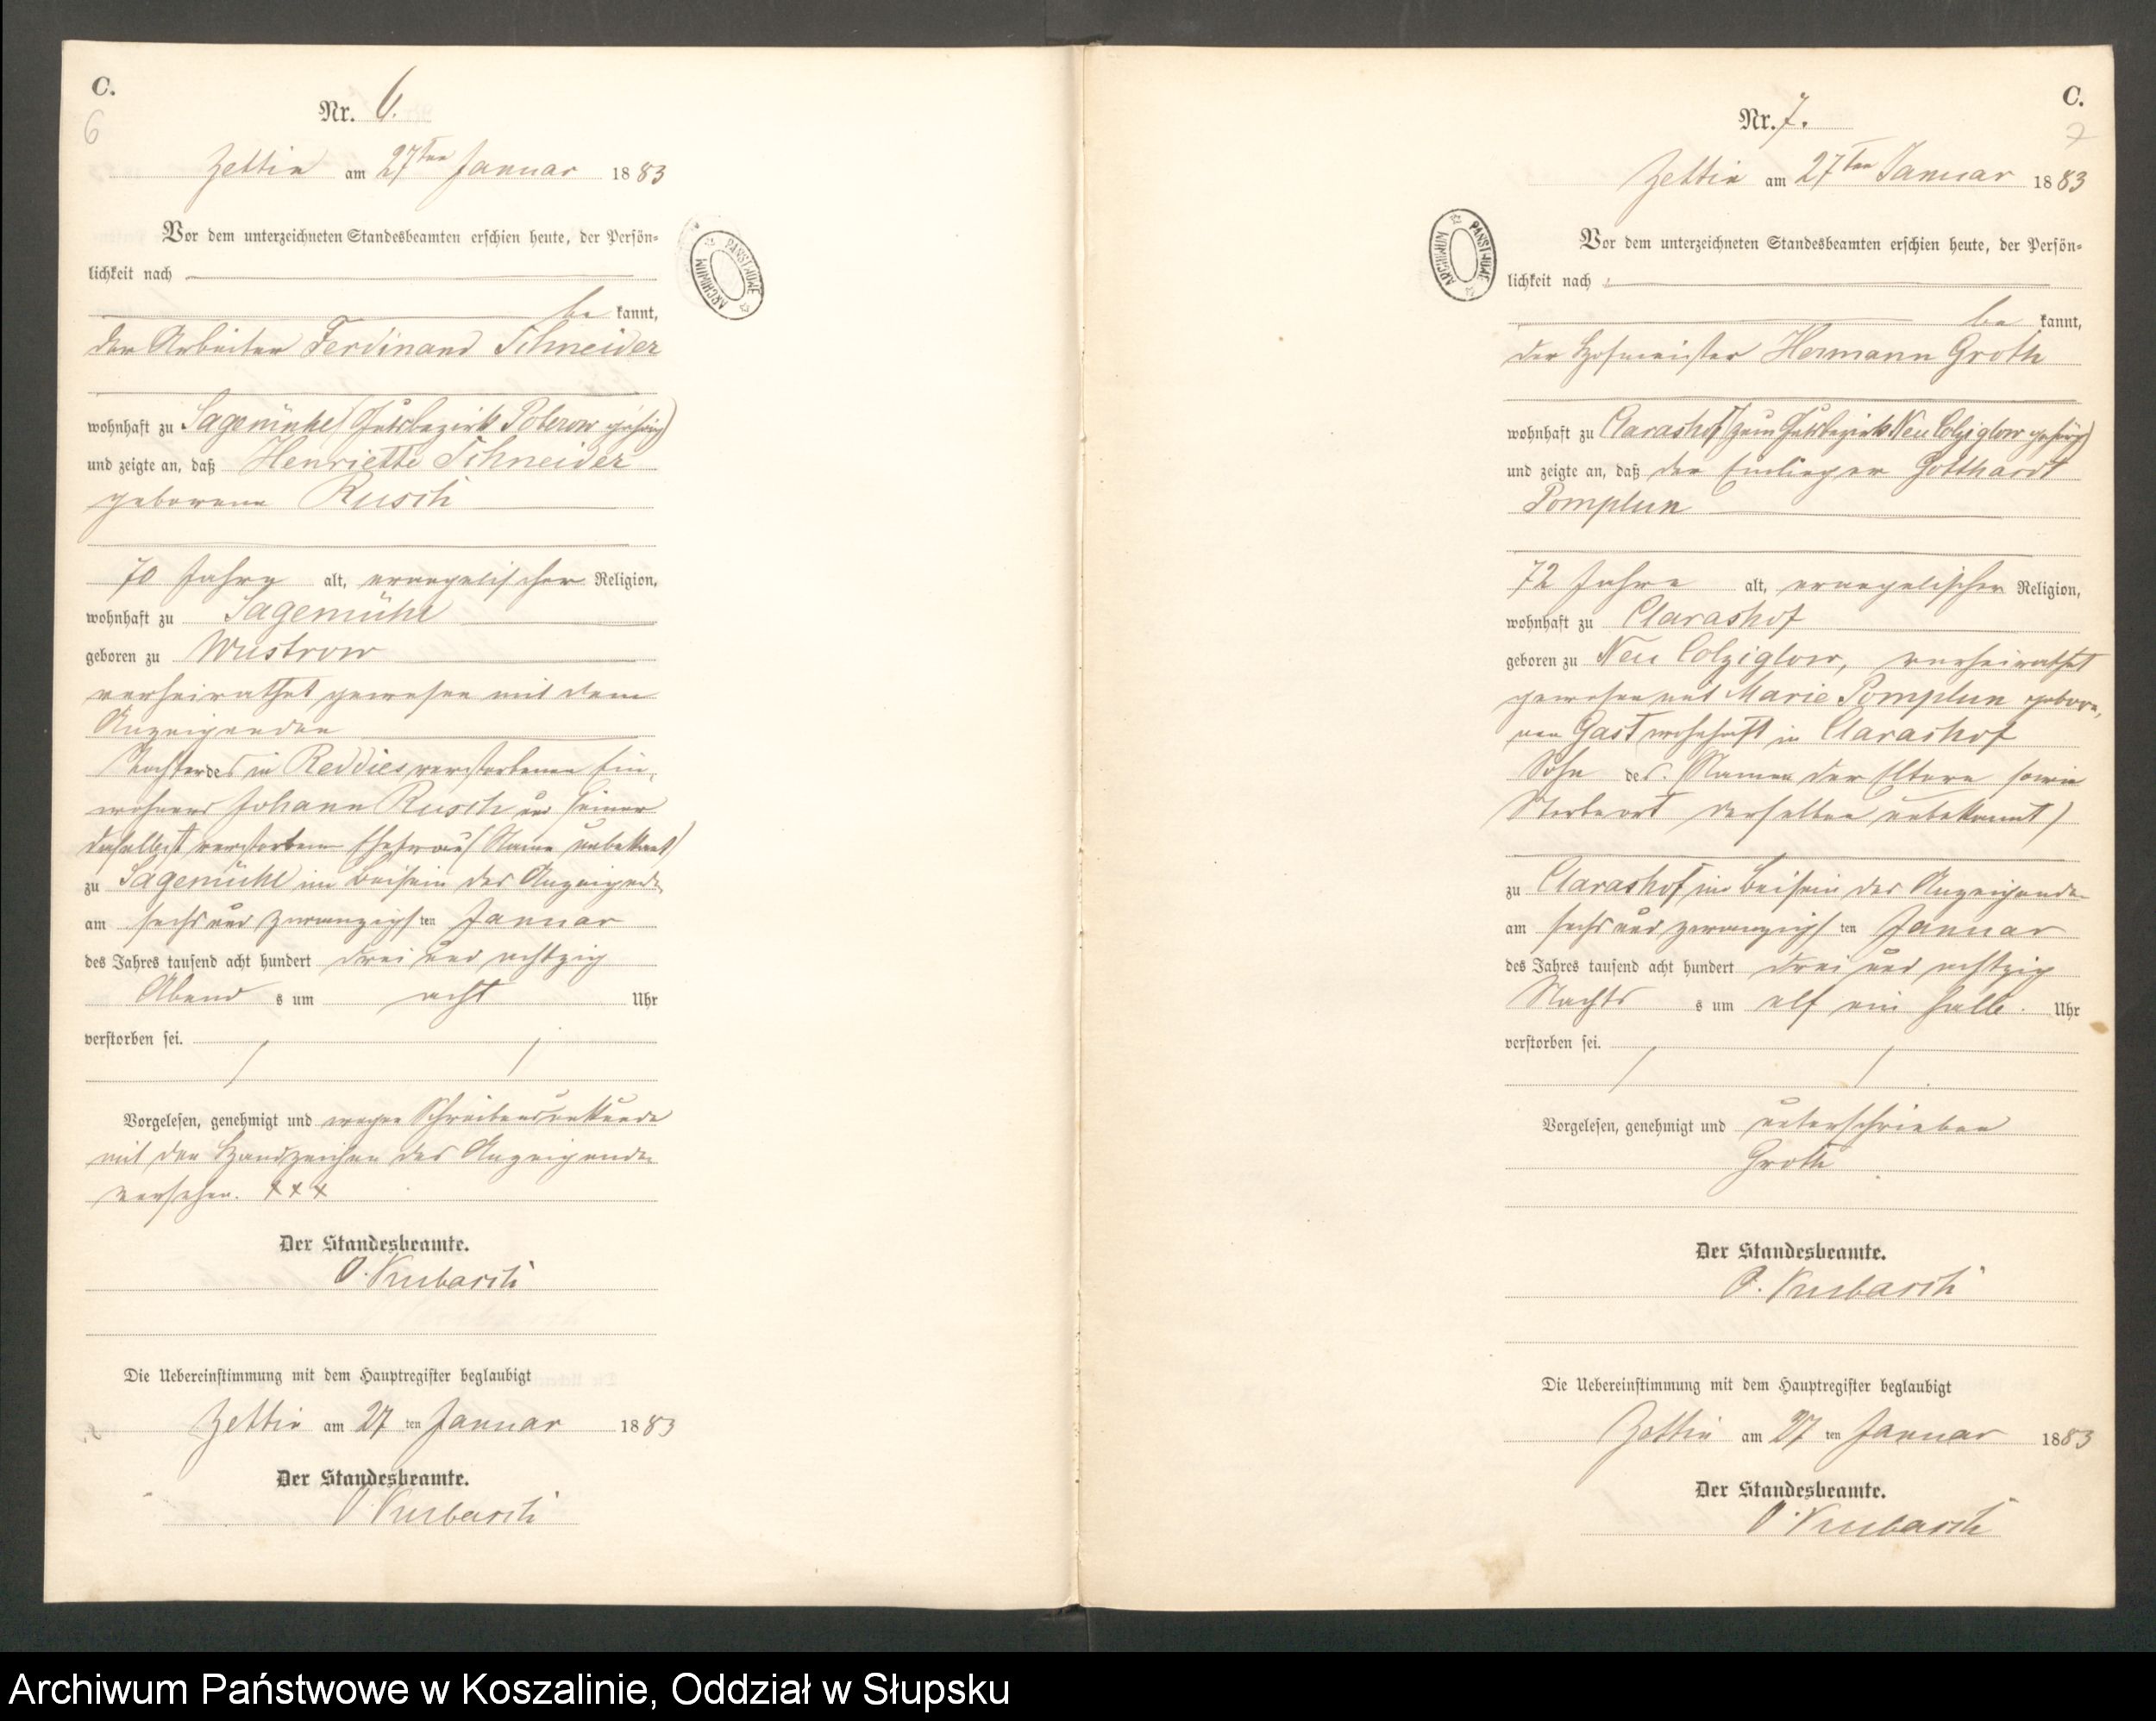 C.
6
Nr. 6.
Zettin am 27ten Januar 1883
Vor dem unterzeichneten Standesbeamten erschien heute, der Persön-
lichkeit nach
be kannt,
der Arbeiter Ferdinand Schneider
wohnhaft zu Sagemühle (Gutsbezirk Poberow gehörig)
und zeigte an, daß Henriette Schneider
geborene Rusch
70 Jahre alt, evangelischer Religion,
wohnhaft zu Sagemühl
geboren zu Wustrow
verheirathet gewesen mit dem
Anzeigenden
Tochter des in Reddies verstorbenen Ein-
wohners Johann Rusch und seiner
daselbst verstorbenen Ehefrau (Name unbekannt)
zu Sagemühl im Beisein des Anzeigenden
am sechs und zwanzigsten Januar
des Jahres tausend acht hundert drei und achtzig
Abend s um acht Uhr
verstorben sei.
Vorgelesen, genehmigt und wegen Schreibensunkunde
mit den Handzeichen des Anzeigenden
versehen. xxx
Der Standesbeamte.
O. Kubasch
Die Uebereinstimmung mit dem Hauptregister beglaubigt
Zettin am 27 ten Januar 1883
Der Standesbeamte.
O. Kubasch
C.
7
Nr. 7.
Zettin am 27ten Januar 1883
ARCHIWUM PAŃSTWOWE
Vor dem unterzeichneten Standesbeamten erschien heute, der Persön-
lichkeit nach
be kannt,
der Hofmeister Hermann Groth
wohnhaft zu Clarashof (zum Gutsbezirk Neu Colziglow gehörig)
und zeigte an, daß der Einlieger Gotthardt
Pomplun
72 Jahre alt, evangelischer Religion,
wohnhaft zu Clarashof
geboren zu Neu Colziglow, verheirathet
gewesen mit Marie Pomplun gebore-
nen Gast wohnhaft in Clarashof
Sohn des. (Namen der Eltern sowie
Sterbeort derselben unbekannt)
zu Clarashof im Beisein des Anzeigenden
am sechs und zwanzigsten Januar
des Jahres tausend acht hundert drei und achtzig
Nachts s um elf ein halb Uhr
verstorben sei.
Vorgelesen, genehmigt und unterschrieben
Groth
Der Standesbeamte.
O. Kubasch
Die Uebereinstimmung mit dem Hauptregister beglaubigt
Zettin am 27 ten Januar 1883
Der Standesbeamte.
O. Kubasch
Archiwum Państwowe w Koszalinie, Oddział w Słupsku